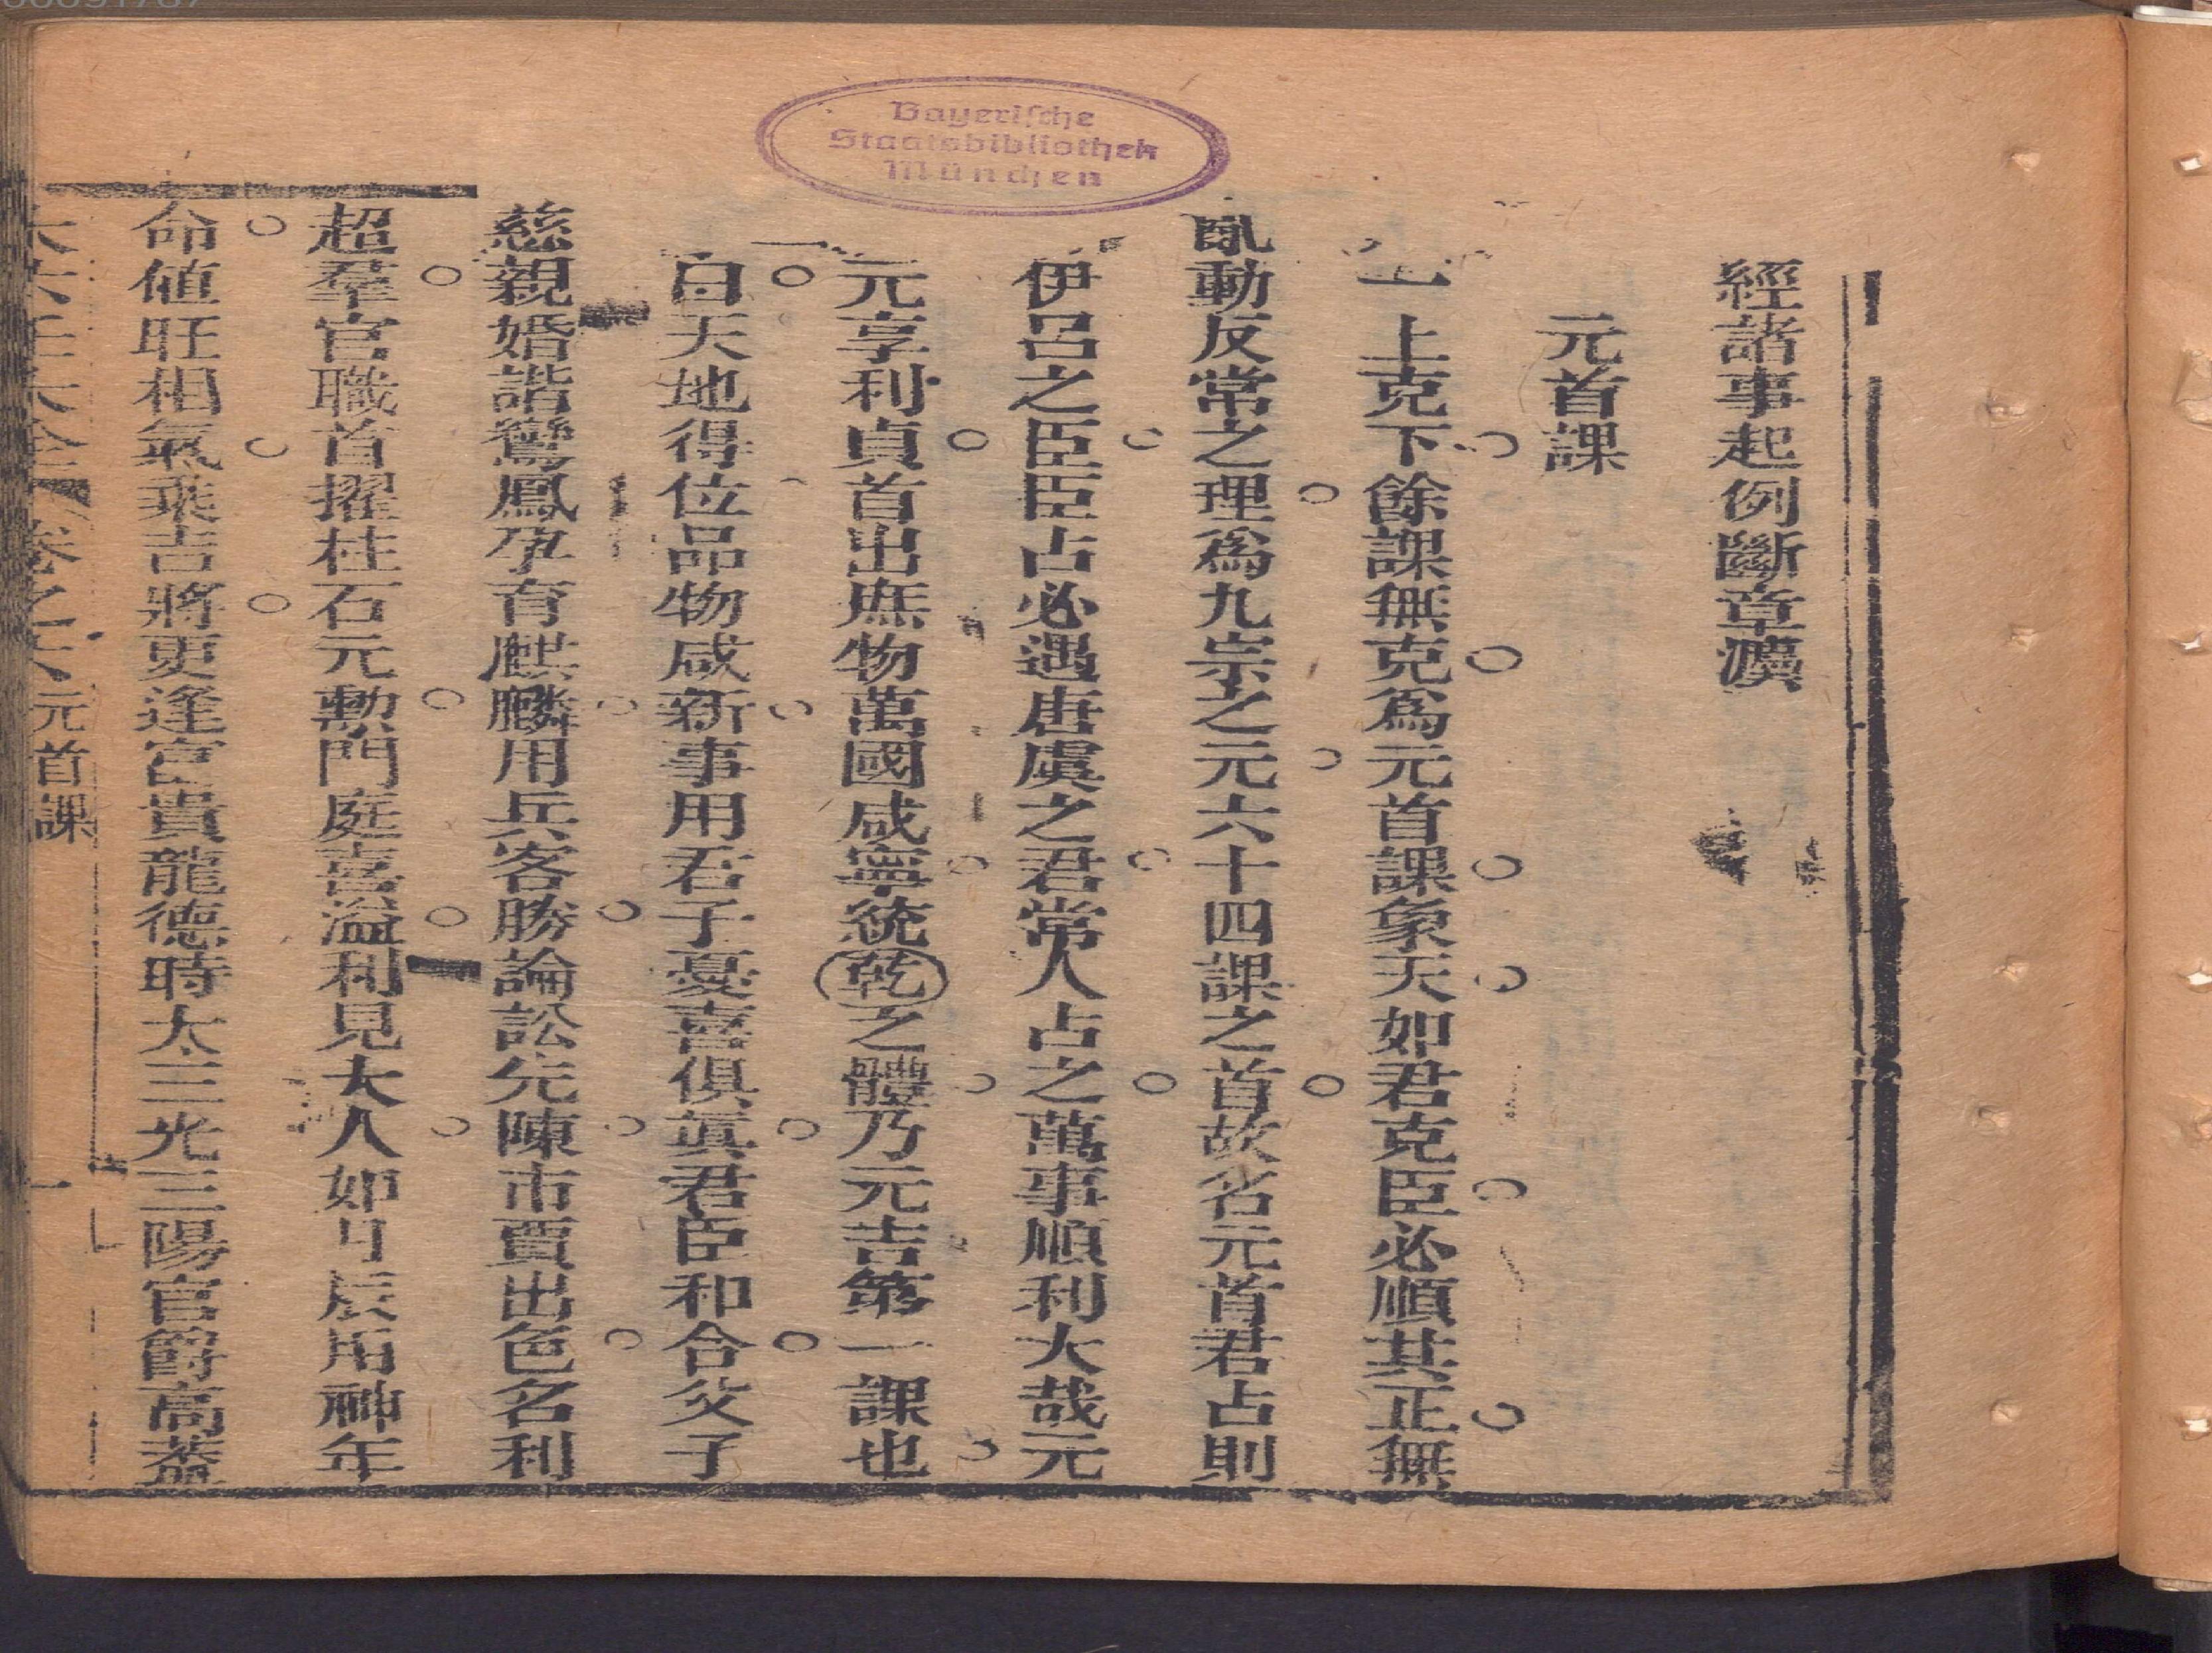 經諸事起例斷章灋
元首課
一上克下餘課無克爲元首課象天如君克臣必順其正無
亂動反常之理爲九宗之元六十四課之首故名元首君占則
伊呂之臣臣占必遇唐虞之君常人占之萬事順利大哉元
元享利貞首出庶物萬國咸寧統乾之體乃元吉第一課也
曰天地得位品物咸新事用君子憂喜俱眞君臣和合父子
慈親婚諧鸞鳳孕育麒麟用兵客勝論訟先陳市賈出色名利
超羣官職首擢柱石元勳門庭喜溢利見大人如 辰用神年
命値旺相氣乘吉將更逢富貴龍德時太三光三陽官爵高蓋
大六壬大全 卷之六 元首課 一
Bayerische
Staatsbibliothek
München